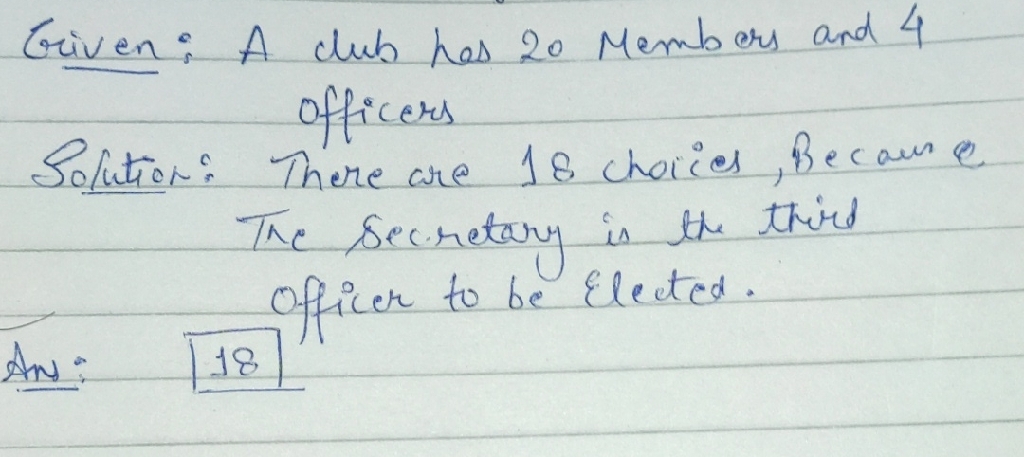 Given: A club has 20 Members and 4
Officers
Solution: There are 18 choices, Because
The Secretary is the third
Officer to be Elected.
Ans: 18